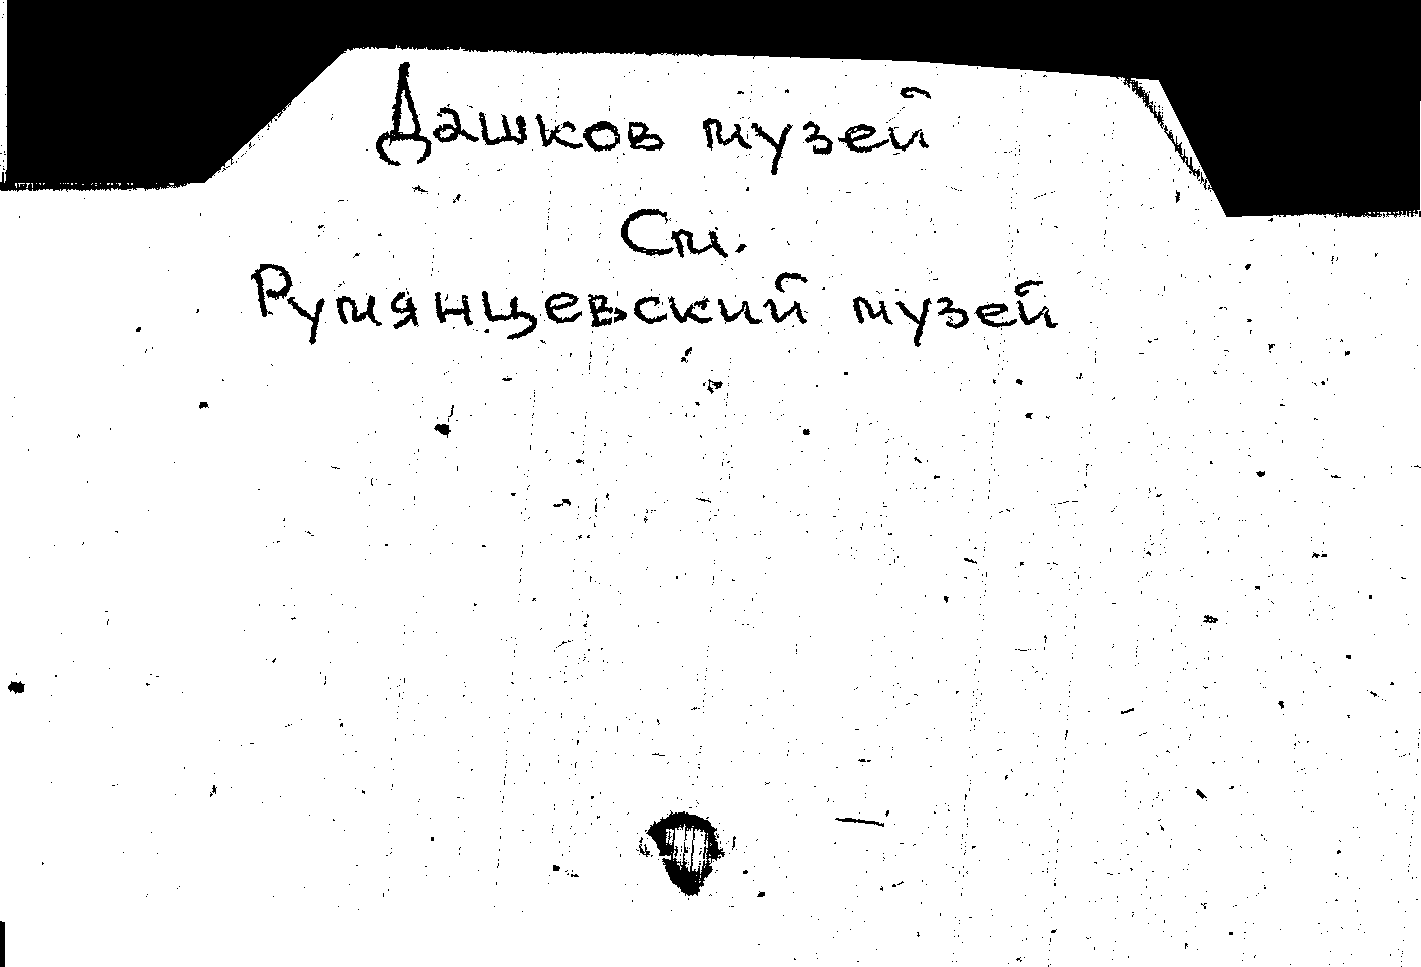 Дашков музей
См.
Румянцевский музей